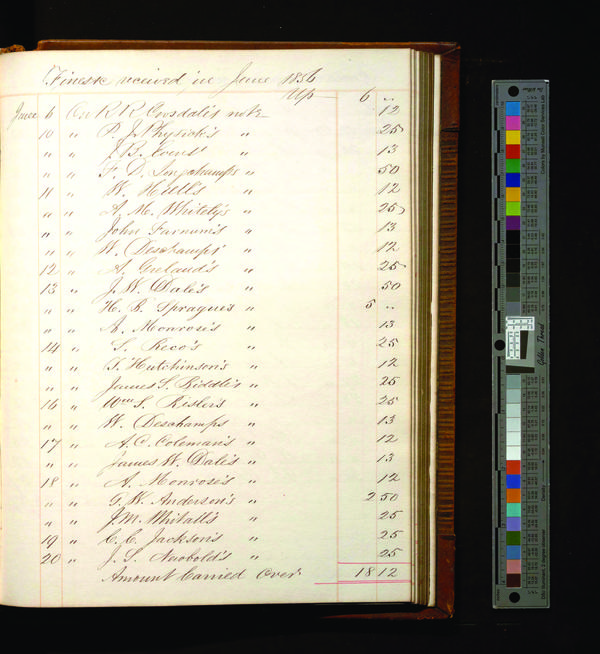 Fines &c received in June 1856
Up 6 ..
June 6 On R R Corsdali's note 12
10 " P. J. Physick's " 25
" " J. B. Evens' " 13
" " F. D. " 50
11 " W. Hill's " 12
" " A. M. Whitely's " 25
" " John Farnum's " 13
" " W. Deschamps' " 12
12 " A. " 25
13 " J. W. Dale's " 50
" " H. R. Sprague's " 5 ..
" " A. Monrose's " 13
14 " S. Reco's " 25
" " T. Hutchinson's " 12
" " James S. Riddle's " 25
16 " Wm S. Risler's " 25
" " W. Deschamps " 13
17 " A. C. Coleman's " 12
" " James W. Dale's " 13
18 " A. Monrose's " 12
" " G. W. Anderson's " 2 50
" " J. M. Whitall's " 25
19 " C. C. Jackson's " 25
20 " J. S. Newbold's " 25
Amount Carried Over 18 12
Golden Thread